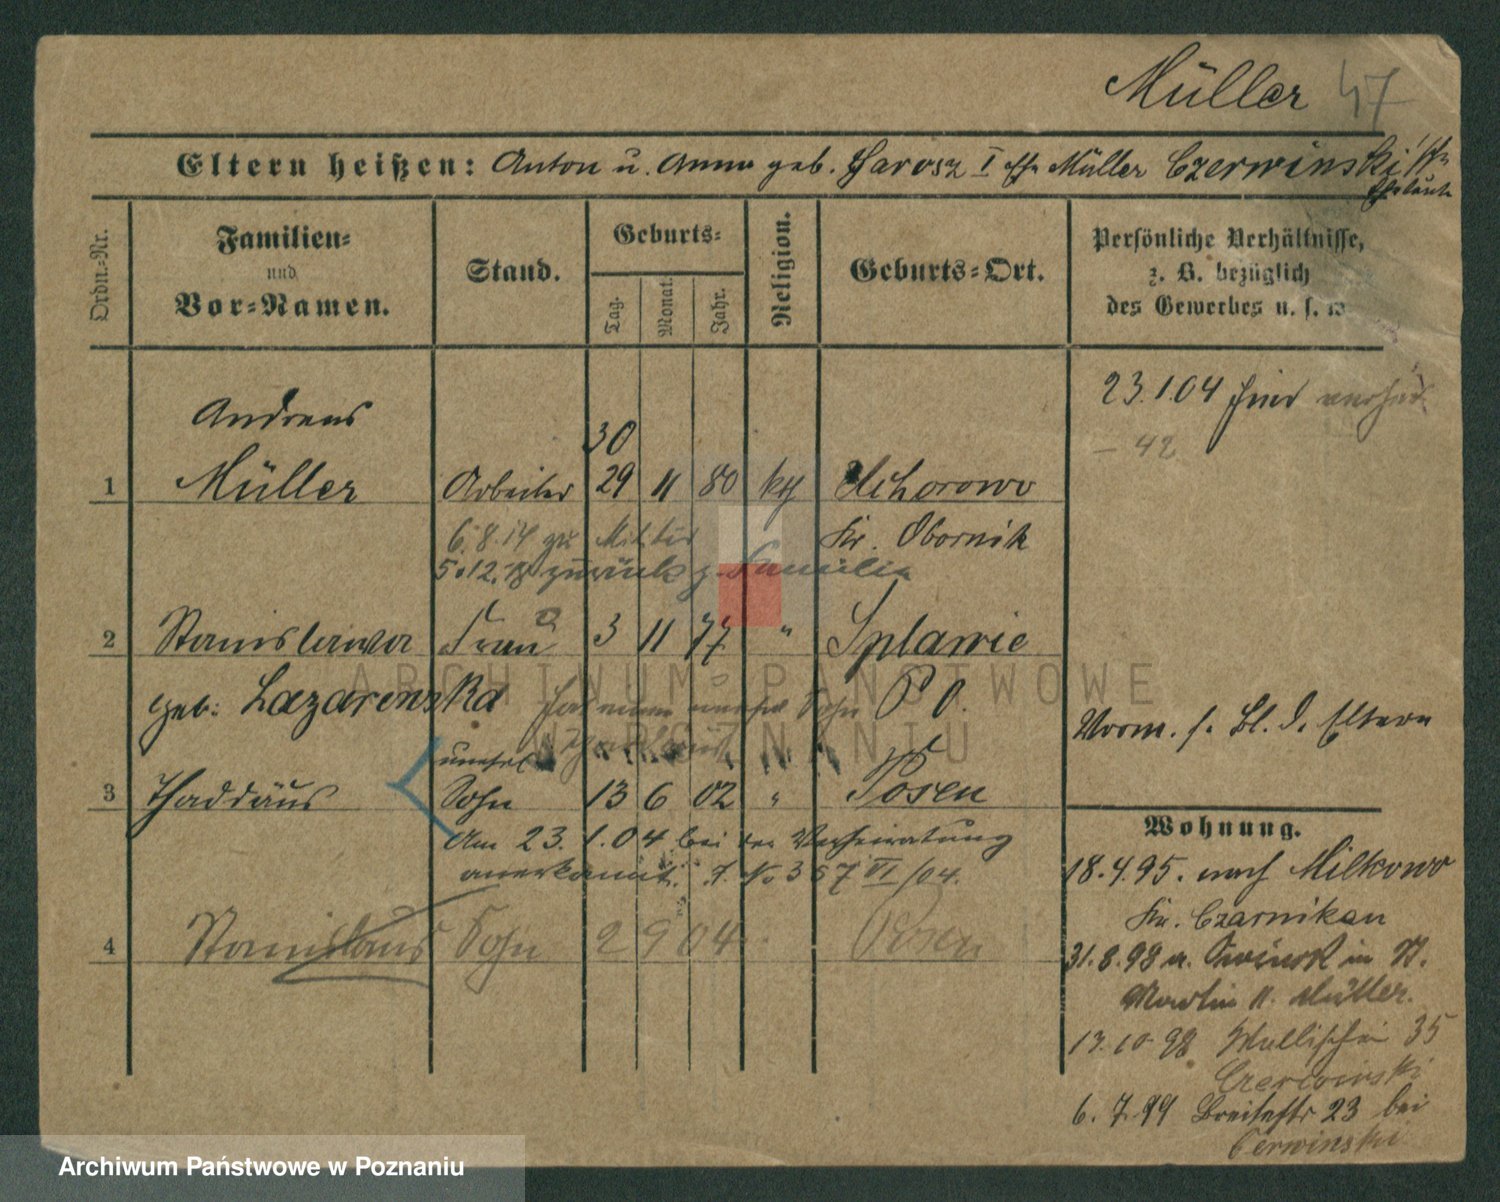 Müller 47
Eltern heißen: Anton u. Anna geb. Jarosz I Müller Czerwinski
Eheleute
Ordn.-Nr.
Familien-
und
Vor-Namen.
Stand.
Geburts-
Tag.
Monat.
Jahr.
Religion.
Geburts-Ort.
Persönliche Verhältnisse,
z. B. bezüglich
des Gewerbes u. s. w
23.1.04 hier verhei
– 42
Andreas
30
1 Müller Arbeiter 29 11 80 kth
6.8.14 zu Militär Kr. Obornik
5.12.18 zurück z. Familie
2 Stanislawa Frau 3 11 77 " Splawie
geb: Lazarenska hat einen unehel Sohn P O.
Vorm. s. Bl. d. Eltern
unehel
3 Thaddäus Sohn 13 6 02 " Posen
Am 23. 1.04 bei der Verheiratung
anerkannt. J. No 367 VI/04.
4 Stanislaus Sohn 2 9 04 Posen
Wohnung.
18.4.95. nach Milkowo
Kr. Czarnikau
31.8.98 a. in St.
Martin 11. Müller.
13.10.98 Wallischei 35
Czerwinski
6.7.99 Breitestr 23 bei
Cerwinski
ARCHIWUM PAŃSTWOWE
W POZNANIU
Archiwum Państwowe w Poznaniu